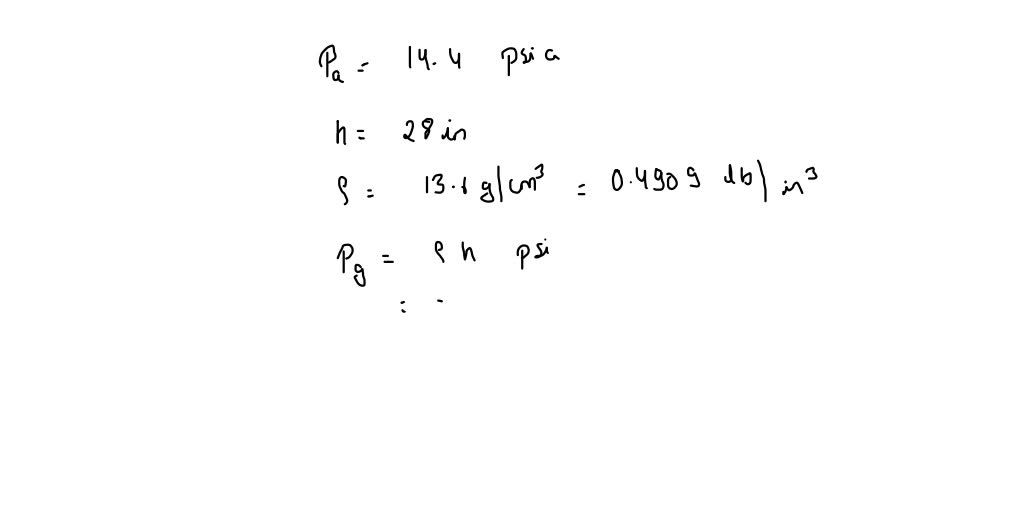 Pa = 14.4 psia
h = 28 in
ρ = 13.6 g/cm³ = 0.4909 lb/in³
Pg = ρ h psi
= -